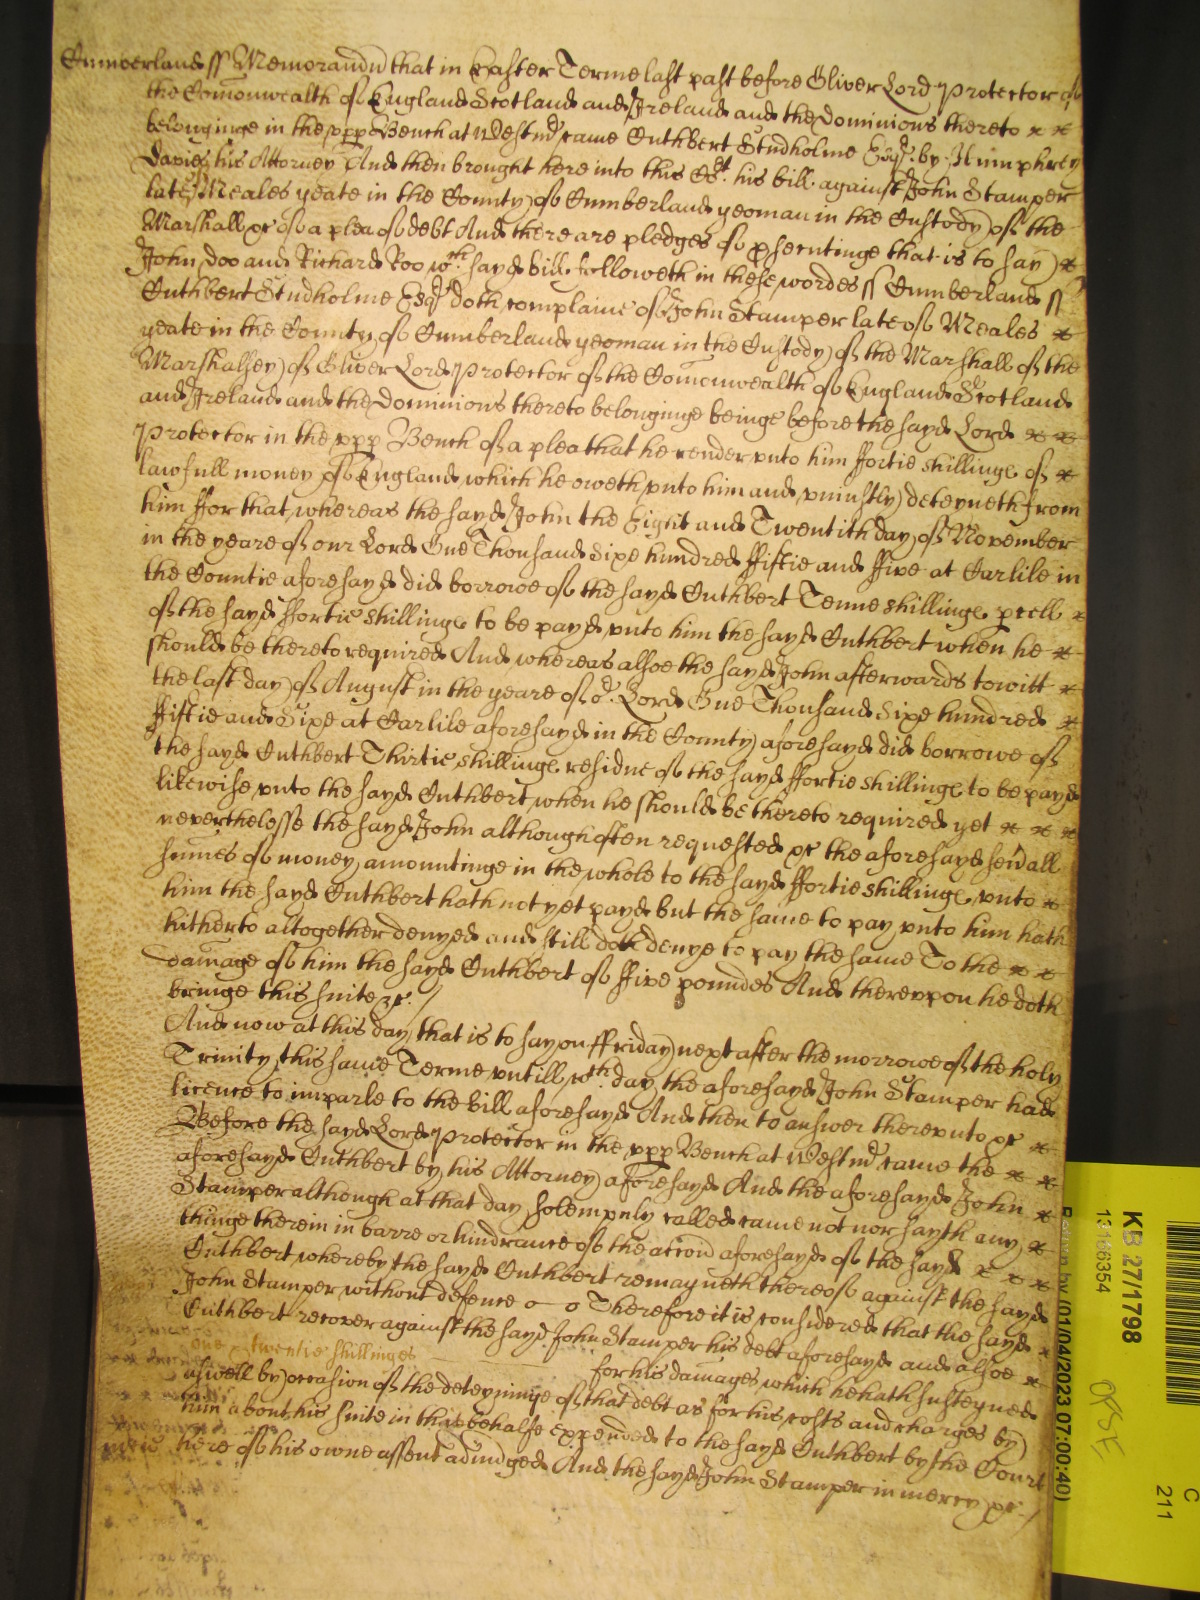 Cumberland ss Memorandu that in Easter Terme last past before Oliver Lord Protector of
the Comonwealth of England Scotland and Ireland and the Dominions thereto
belonginge in the vpp Bench at Westmr came Cuthbert Studholme Esqr. by Humphrey
Davies his Attorney And then brought here into this Crt. his bill against John Stamper
late Meales yeate in the County of Cumberland yeoman in the Custody of the
Marshall &c of a plea of debt And there are pledges of psecutinge that is to say
John Doo and Richard Roo wch. sayd bill followeth in these wordes ss Cumberland ss
Cuthbert Studholme Esqr doth complaine of John Stamper late of Meales
yeate in the County of Cumberland yeoman in the Custody of the Marshall of the
Marshalsey of Oliver Lord Protector of the Comonwealth of England Scotland
and Ireland and the Dominions thereto belonginge beinge before the sayd Lord
Protector in the vpp Bench of a plea that he render vnto him ffortie shillinges of
lawfull money of England which he oweth vnto him and vniustly deteyneth from
him ffor that whereas the sayd John the Eight and Twentith day of November
in the yeare of our Lord One Thousand Sixe hundred ffiftie and ffive at Carlile in
the Countie aforesayd did borrowe of the sayd Cuthbert Tenne shillinges pcell
of the sayd ffortie shillinges to be payd vnto him the sayd Cuthbert when he
should be thereto required And whereas alsoe the sayd John afterwards towitt
the last day of August in the yeare of or. Lord One Thousand Sixe hundred
ffiftie and Sixe at Carlile aforesayd in the County aforesayd did borrowe of
the sayd Cuthbert Thirtie shillinges residue of the sayd ffortie shillinges to be payd
likewise vnto the sayd Cuthbert when he should be thereto required yet
neverthelesse the sayd John although often requested &c the aforesayd sevall
sumes of money amountinge in the whole to the sayd ffortie shillinges vnto
him the sayd Cuthbert hath not yet payd but the same to pay vnto him hath
hitherto altogether denyed and still doth denye to pay the same To the
damage of him the sayd Cuthbert of ffive poundes And therevpon he doth
bringe this suite &c. /
And now at this day that is to say on ffriday next after the morrowe of the holy
Trinity this same Terme vntill wch. day the aforesayd John Stamper had
licence to imparle to the bill aforesayd And then to answer therevnto &c
Before the sayd Lord Protector in the vpp Bench at Westmr came the
aforesayd Cuthbert by his Attorney aforesayd And the aforesayd John
Stamper although at that day solempnly called came not nor sayth any
thinge therein in barre or hindrance of the accon aforesayd of the sayd
Cuthbert whereby the sayd Cuthbert remayneth thereof against the sayd
John Stamper without defence Therefore it is considered that the sayd
Cuthbert recover against the sayd John Stamper his debt aforesayd and alsoe
one twentie shillinges for his damages which he hath susteyned
aswell by occasion of the deteyninge of that debt as for his costs and charges by
him about his suite in that behalfe expended to the sayd Cuthbert by the Court
here of his owne assent adiudged And the sayd John Stamper in mercy &c. /
KB 27/1798
13166354
(01/04/2023 07:00:40)
C
211